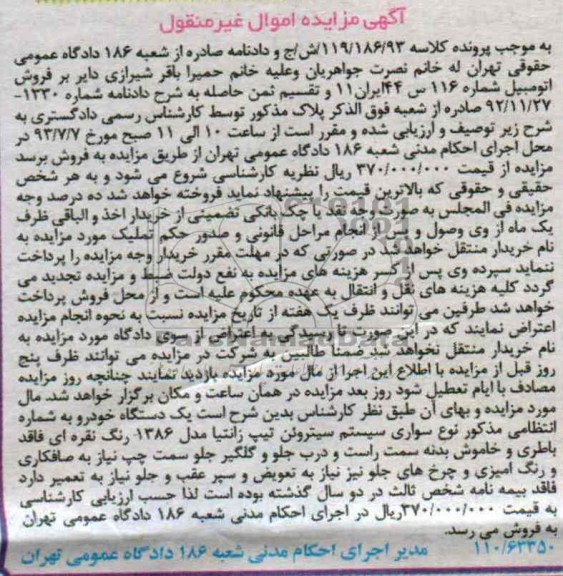 آگهی مزایده اموال غیرمنقول
به موجب پرونده کلاسه ۱۱۹/۱۸۶/۹۳/ش/ج و دادنامه صادره از شعبه ۱۸۶ دادگاه عمومی
حقوقی تهران له خانم نصرت جواهریان وعلیه خانم حمیرا باقر شیرازی دایر بر فروش
اتومبیل شماره ۱۱۶ س ۴۴ایران۱۱ و تقسیم ثمن حاصله به شرح دادنامه شماره ۱۳۳۰-
۹۲/۱۱/۲۷ صادره از شعبه فوق الذکر پلاک مذکور توسط کارشناس رسمی دادگستری به
شرح زیر توصیف و ارزیابی شده و مقرر است از ساعت ۱۰ الی ۱۱ صبح مورخ ۹۳/۷/۷ در
محل اجرای احکام مدنی شعبه ۱۸۶ دادگاه عمومی تهران از طریق مزایده به فروش برسد
مزایده از قیمت ۳۷۰/۰۰۰/۰۰۰ ریال نظریه کارشناسی شروع می شود و به هر شخص
حقیقی و حقوقی که بالاترین قیمت را پیشنهاد نماید فروخته خواهد شد ده درصد وجه
مزایده فی المجلس به صورت وجه نقد یا چک بانکی تضمینی از خریدار اخذ و الباقی ظرف
یک ماه از وی وصول و پس از انجام مراحل قانونی و صدور حکم تملیک مورد مزایده به
نام خریدار منتقل خواهد شد در صورتی که در مهلت مقرر خریدار وجه مزایده را پرداخت
ننماید سپرده وی پس از کسر هزینه های مزایده به نفع دولت ضبط و مزایده تجدید می
گردد کلیه هزینه های نقل و انتقال به عهده محکوم علیه است و از محل فروش پرداخت
خواهد شد طرفین می توانند ظرف یک هفته از تاریخ مزایده نسبت به نحوه انجام مزایده
اعتراض نمایند که در این صورت تا رسیدگی به اعتراض از سوی دادگاه مورد مزایده به
نام خریدار منتقل نخواهد شد ضمنا طالبین به شرکت در مزایده می توانند ظرف پنج
روز قبل از مزایده با اطلاع این اجرا از مال مورد مزایده بازدید نمایند چنانچه روز مزایده
مصادف با ایام تعطیل شود روز بعد مزایده در همان ساعت و مکان برگزار خواهد شد. مال
مورد مزایده و بهای آن طبق نظر کارشناس بدین شرح است یک دستگاه خودرو به شماره
انتظامی مذکور نوع سواری سیستم سیتروئن تیپ زانتیا مدل ۱۳۸۶ رنگ نقره ای فاقد
باطری و خاموش بدنه سمت راست و درب جلو و گلگیر جلو سمت چپ نیاز به صافکاری
و رنگ امیزی و چرخ های جلو نیز نیاز به تعویض و سپر عقب و جلو نیاز به تعمیر دارد
فاقد بیمه نامه شخص ثالث در دو سال گذشته بوده است لذا حسب ارزیابی کارشناسی
به قیمت ۳۷۰/۰۰۰/۰۰۰ریال در اجرای احکام مدنی شعبه ۱۸۶ دادگاه عمومی تهران
به فروش می رسد.
۱۱۰/۶۳۳۵۰ مدیر اجرای احکام مدنی شعبه ۱۸۶ دادگاه عمومی تهران